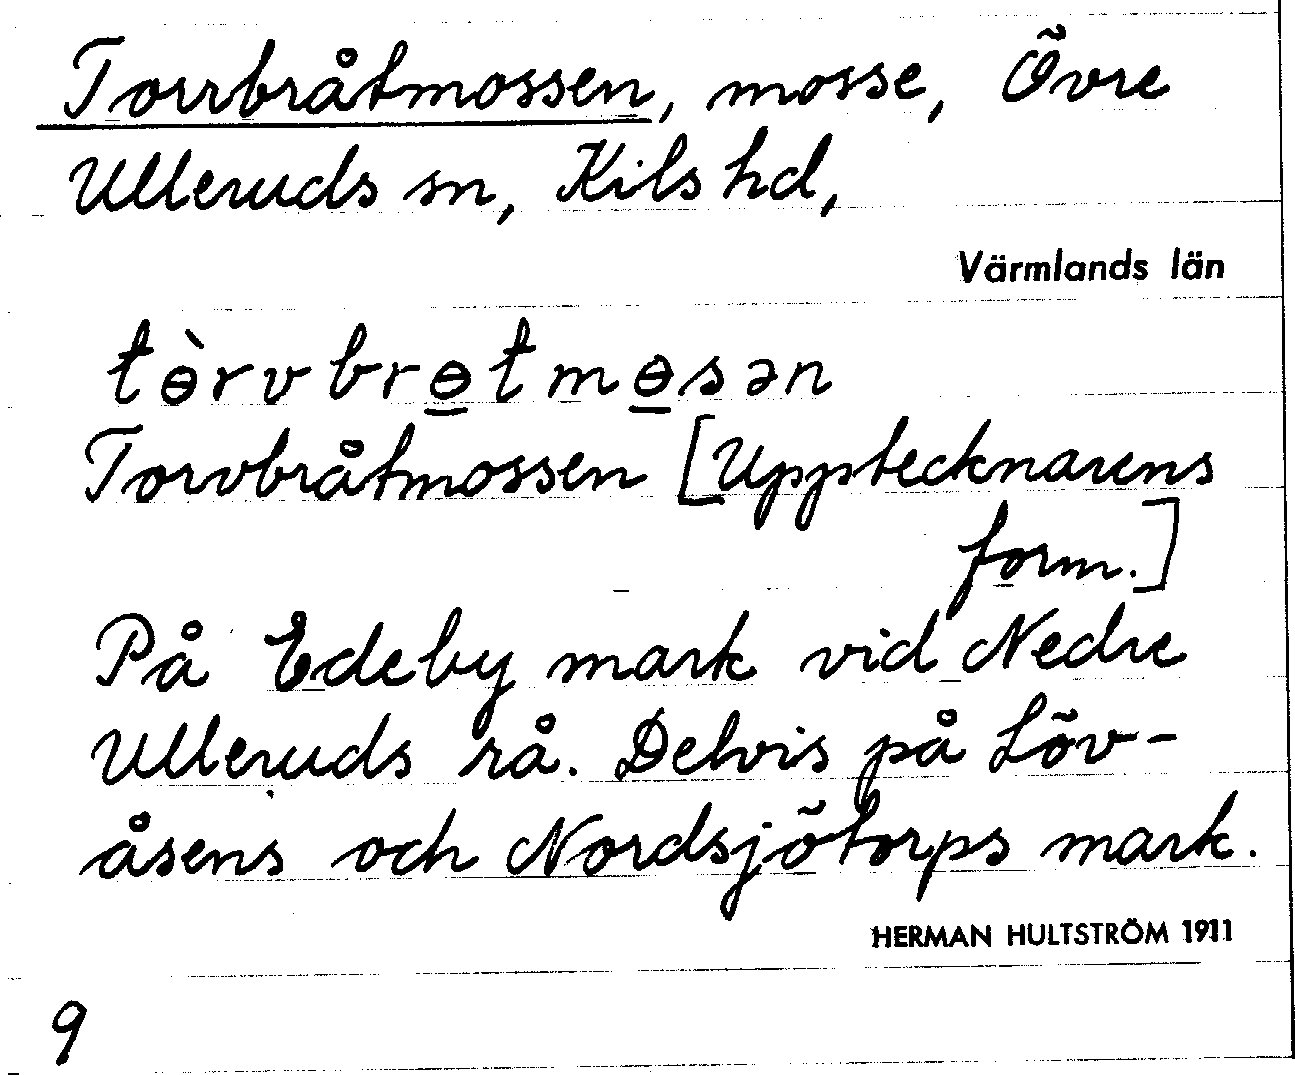 Torrbråtmossen, mosse, Övre
Ulleruds sn, Kils hd,
Värmlands län
tɵ̀rvbrɵ̲tmɵ̲sən
Torvbråtmossen [Upptecknarens
form.]
På Edeby mark vid Nedre
Ulleruds rå. Delvis på Löv-
åsens och Nordsjötorps mark.
HERMAN HULTSTRÖM 1911
9